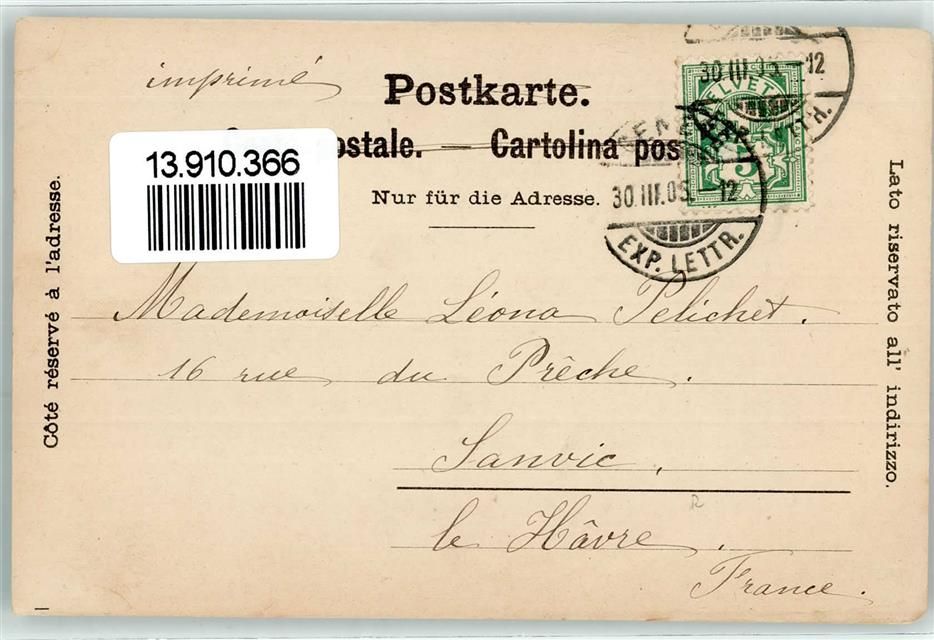 imprimé
Postkarte.
ostale. — Cartolina pos
Nur für die Adresse.
13.910.366
30 III.05. 12
HELVETIA
5
30 III.05. 12
EXP. LETTR.
Côté réservé à l'adresse.
Lato riservato all' indirizzo.
Mademoiselle Léona Pelichet.
16 rue du Prêche.
Sanvic,
le Hâvre.
France.